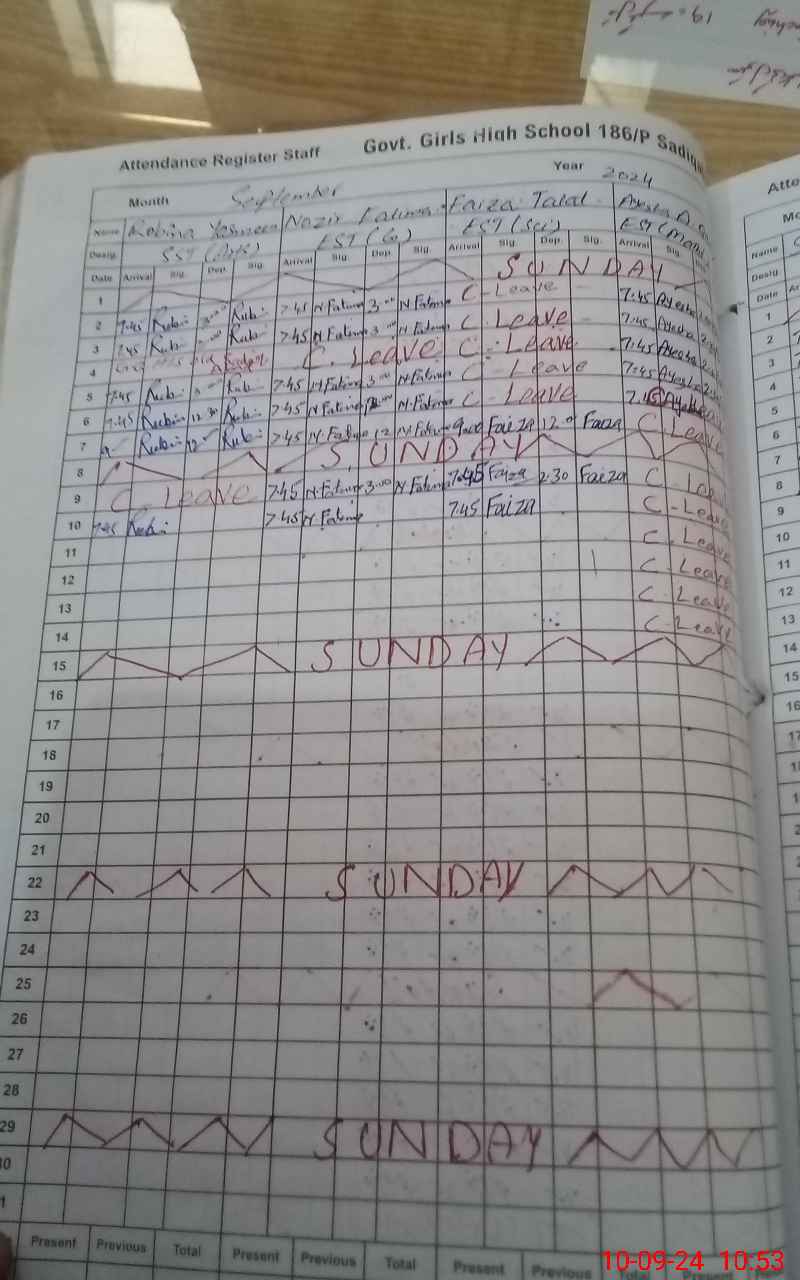 Attendance Register Staff Govt. Girls High School 186/P Sadiq
Month September Year 2024
Name Robina Yasmeen Nazir Fatima Faiza Talal Ayesha A.
Desig. SST (Arts) EST (G) EST (Sci) EST (
Date Arrival Sig. Dep. Sig. Arrival Sig. Dep. Sig. Arrival Sig. Dep. Sig. Arrival Sig.
1 SUNDAY
2 7.45 Rubi 3.00 Rubi 7.45 N.Fatima 3.00 N.Fatima C-Leave 7.45 Ayesha
3 7.45 Rubi Rubi 7.45 N.Fatima 3.00 N.Fatima C-Leave 7.45 Ayesha
4 C.Leave C.Leave 7.45 Ayesha
5 7.45 Rubi Rubi 7.45 N.Fatima 3.00 N.Fatima C-Leave 7.45 Ayesha
6 7.45 Rubi 12.30 Rubi 7.45 N.Fatima N.Fatima C-Leave
7 Rubi 12 Rubi 7.45 N.Fatima 12 N.Fatima 9.00 Faiza 12.0 Faiza C-Leave
8 SUNDAY
9 C.Leave 7.45 N.Fatima 3.00 N.Fatima 7.45 Faiza 2.30 Faiza C-Leave
10 7.45 Rubi 7.45 N.Fatima 7.45 Faiza C-Leave
11 C-Leave
12 C-Leave
13 C-Leave
14 C-Leave
15 SUNDAY
16
17
18
19
20
21
22 SUNDAY
23
24
25
26
27
28
29 SUNDAY
30
Present Previous Total Present Previous Total Present Previous
Atte
Mo
Name
Desig.
Date
1
2
3
4
5
6
7
8
9
10
11
12
13
14
15
16
10-09-24 10:53